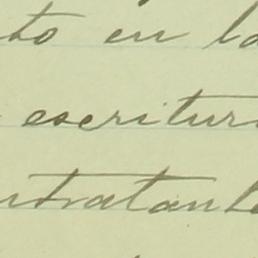 to en la
escritura
ntratante